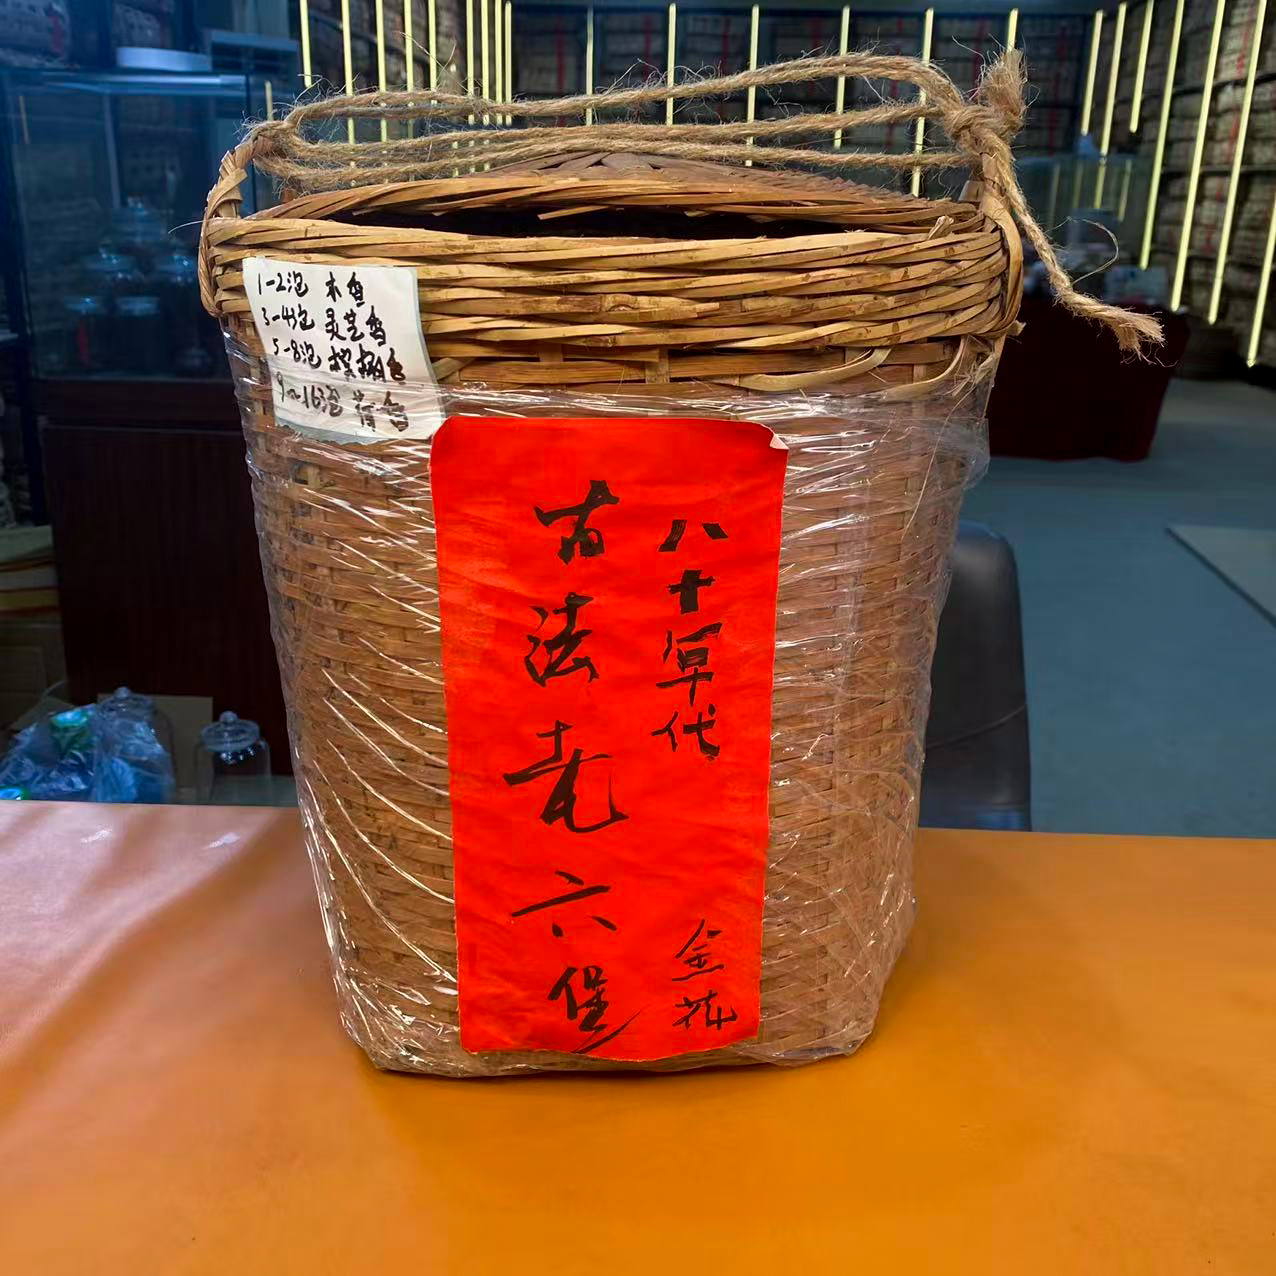 1-2泡 木香
3-4泡 灵芝香
5-8泡 槟榔香
9~16泡 荷香
八十年代
金花
古法老六堡